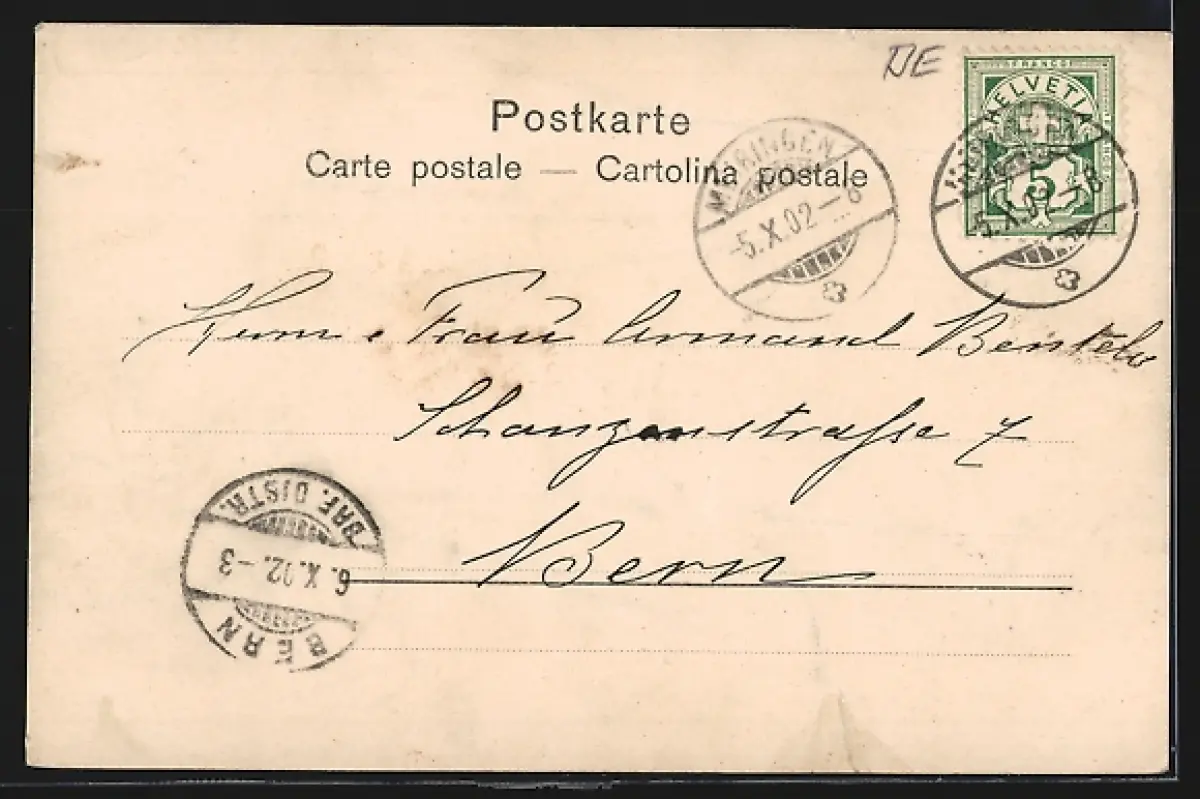 NE
FRANCO
HELVETIA
5
Postkarte
Carte postale — Cartolina postale
-5.X.02-8
-5.X.02-8
Herrn & Frau Armand Benteli
Schanzenstrasse 7
Bern
BRF. DISTR.
6.X.02.-3
BERN